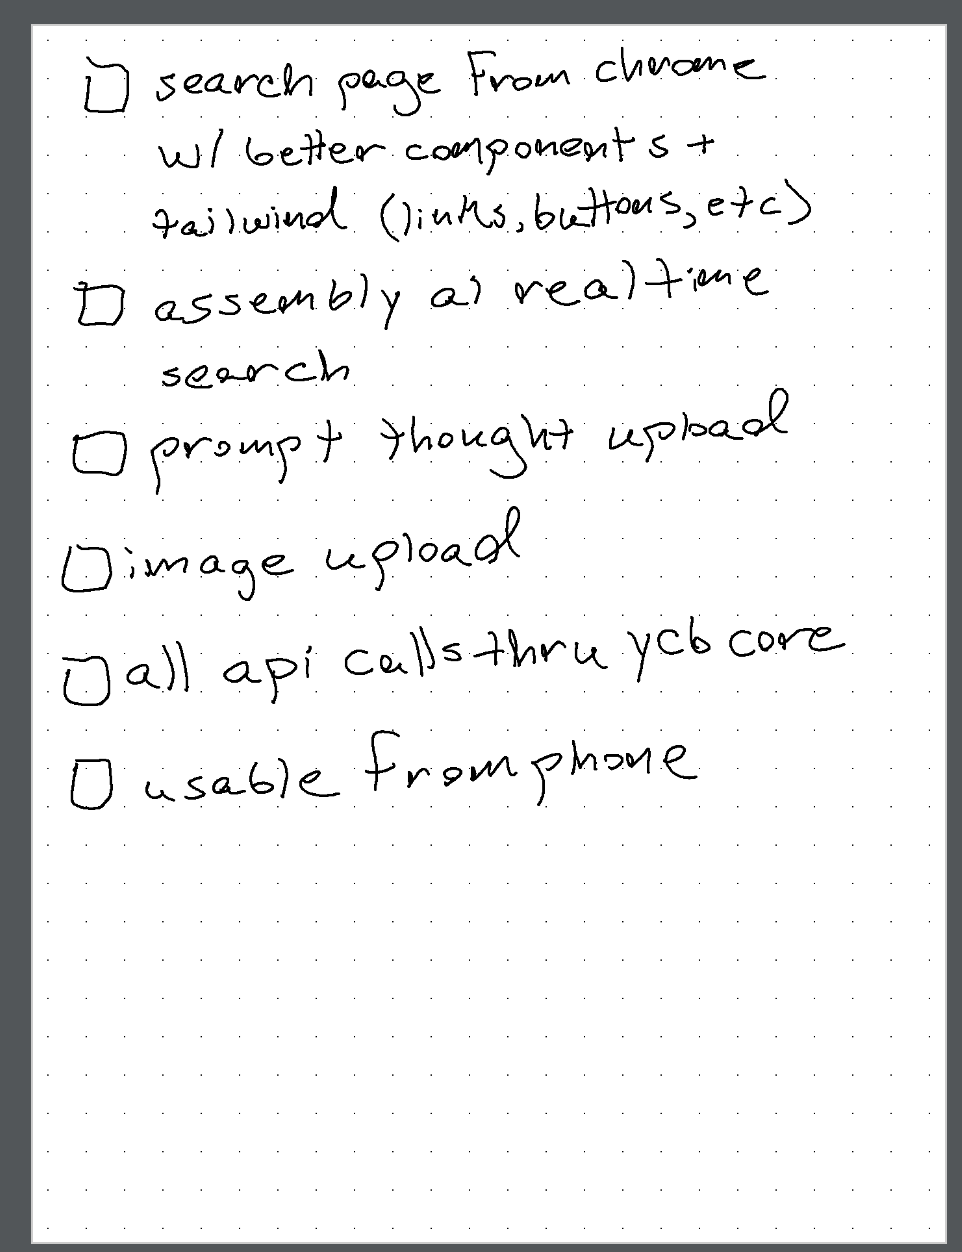 search page From chrome
w/ better components +
tailwind (links, buttons, etc)
assembly ai realtime
search
prompt thought upload
image upload
all api calls thru ycb core
usable from phone